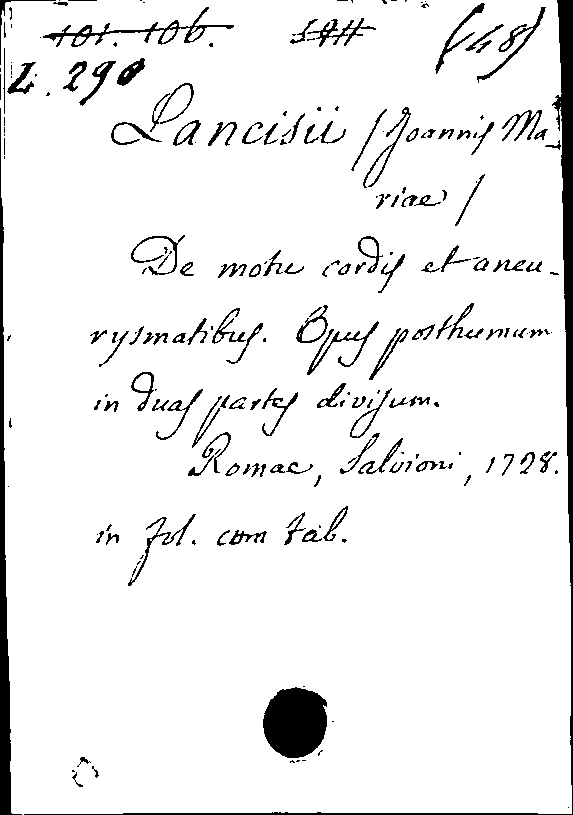 101. 106. (48)
L. 290
Lancisii / Joannis Ma-
riae /
De motu cordis et aneu-
rysmatibus. Opus posthumum
in duas partes divisum.
Romae, Salvioni, 1728.
in fol. com tab.